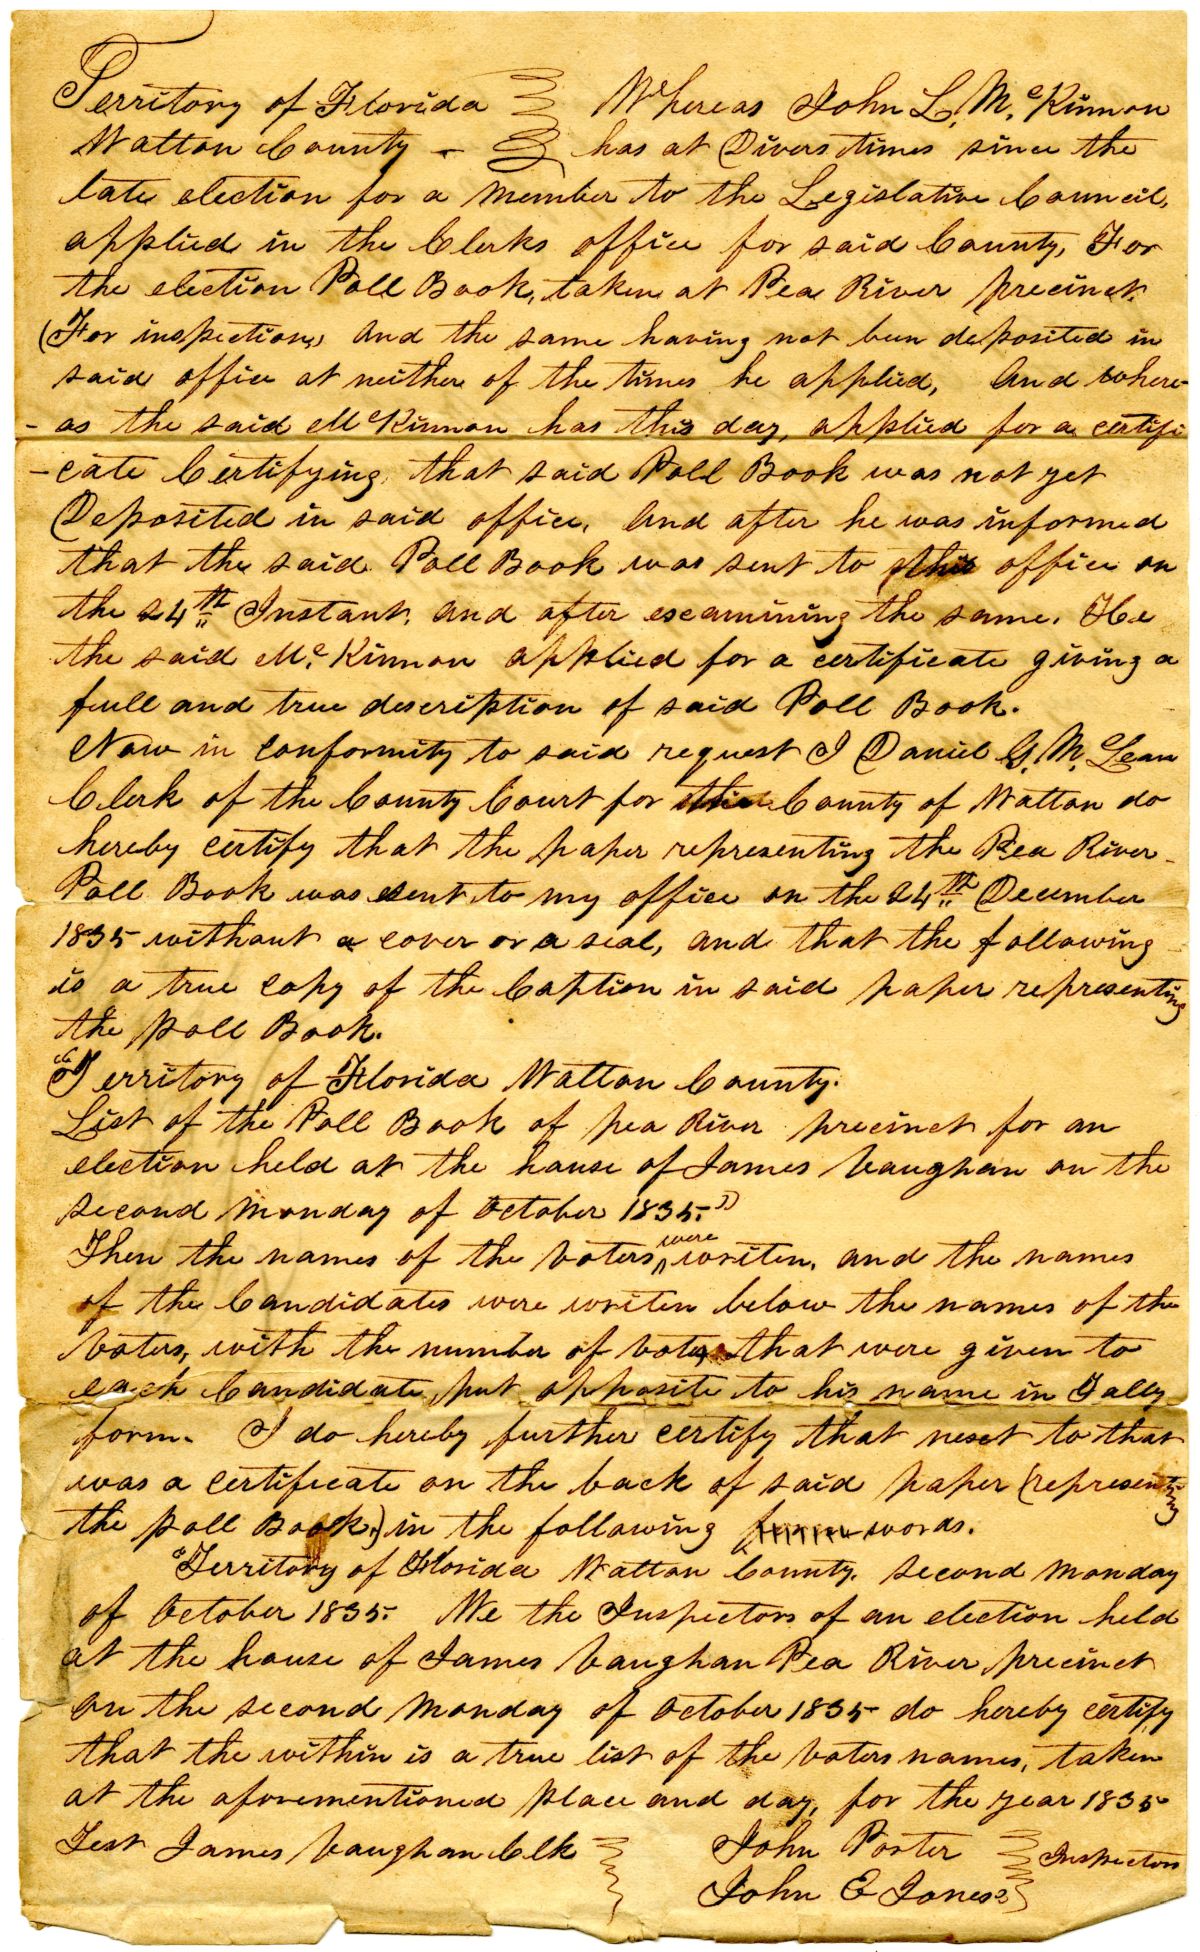 Territory of Florida Whereas John L. McKinnon
Walton County - has at Divers times since the
late election for a member to the Legislative Council,
applied in the Clerks office for said County, For
the election Poll Book, taken at Pea River precinct.
(For inspection, and the same having not been deposited in
said office at neither of the times he applied, And where-
- as the said McKinnon has this day, applied for a certifi
- cate Certifying, that said Poll Book was not yet
Deposited in said office, and after he was informed
that the said Poll Book was sent to this office on
the 24th Instant, and after examining the same. He
the said Mc Kinnon applied for a certificate giving a
full and true description of said Poll Book.
Now in conformity to said request I Daniel G. McLean
Clerk of the County Court for the County of Walton do
hereby certify that the paper representing the Pea River
Poll Book was sent to my office on the 24th December
1835 without a cover or a seal, and that the following
is a true copy of the Caption in said paper representing
the poll Book.
"Territory of Florida Walton County.
List of the Poll Book of pea River precinct for an
election held at the house of James Vaughan on the
second monday of October 1835."
Then the names of the voters were writen, and the names
of the Candidates were writen below the names of the
Voters, with the number of votes that were given to
each Candidate, put opposite to his name in Tally
form. I do hereby further certify that next to that
was a certificate on the back of said paper (representing
the poll Book,) in the following words.
"Territory of Florida Walton County. second monday
of October 1835. We the Inspectors of an election held
at the house of James Vaughan Pea River precinct
on the second monday of October 1835 do hereby certify
that the within is a true list of the voters names, taken
at the aforementioned place and day, for the year 1835
Test James Vaughan Clk John Porter Inspectors
John E Jones